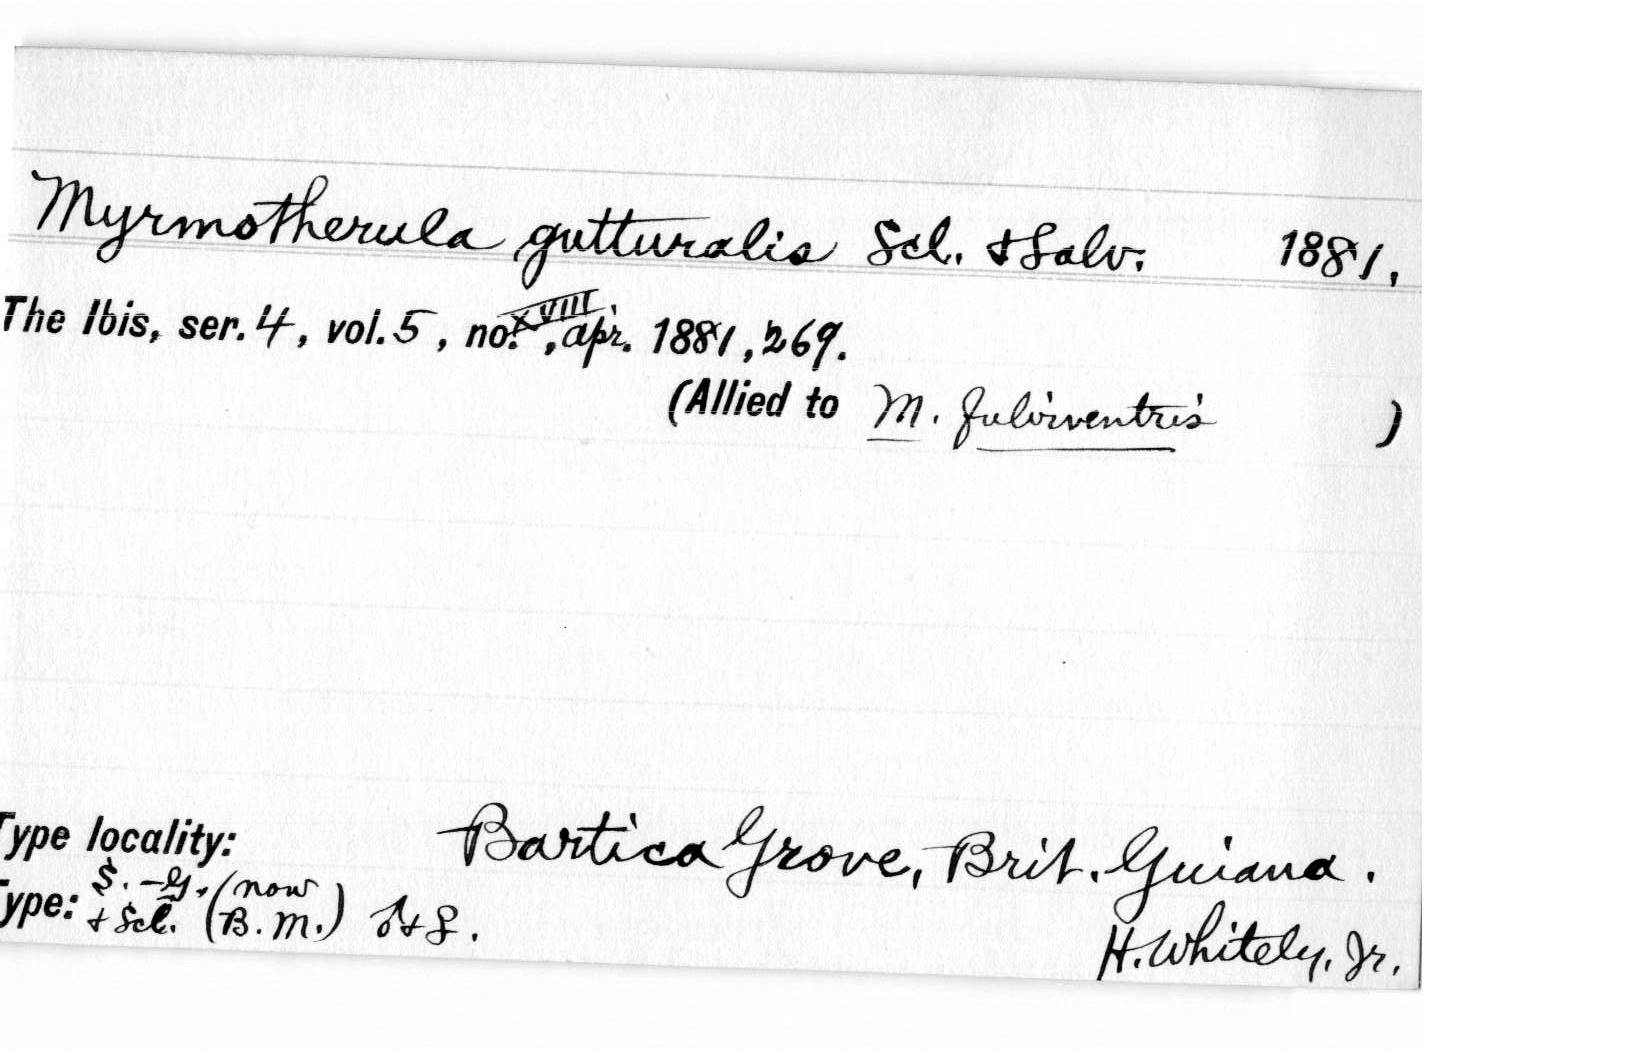 Myrmotherula gutturalis Scl. & Salv. 1881,
The Ibis, ser. 4, vol. 5, no. XVIII, apr. 1881, 269.
(Allied to M. fulviventris )
Type locality: Bartica Grove, Brit. Guiana.
Type: S.-G. & Scl. (now B.M.) ♂ + ♀.
H. Whitely, Jr.